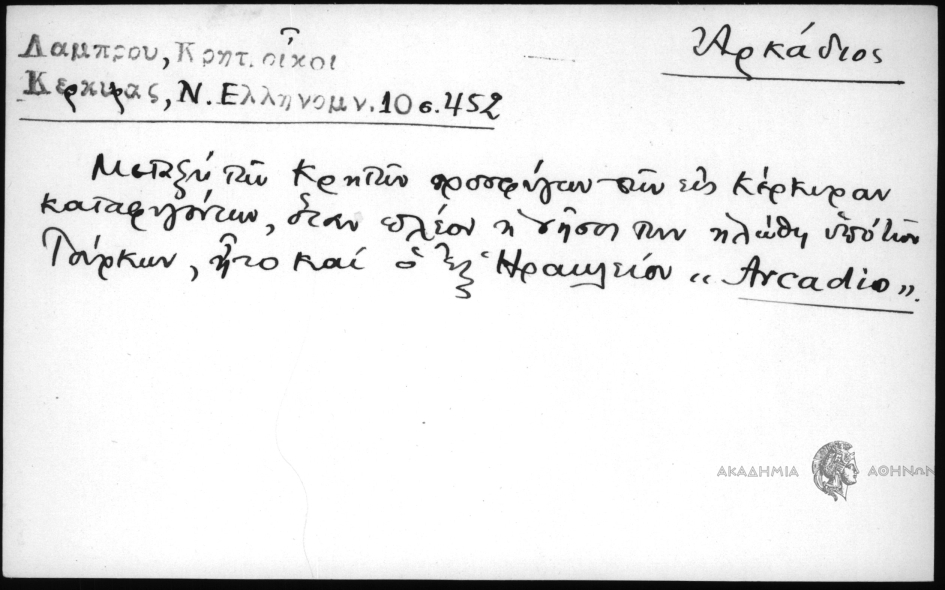 Λαμπρου, Κρητ. οἶκοι
Κερκυρας, Ν. Ελληνομν. 10 σ. 452
Ἀρκάδιος
Μεταξύ τῶν Κρητῶν προσφύγων τῶν εἰς Κέρκυραν
καταφυγόντων, ὅταν πλέον ἡ νῆσος των ἡλώθη ὑπό τῶν
Τούρκων, ἦτο καί ὁ ἐξ Ἡρακλείου „Arcadio".
ΑΚΑΔΗΜΙΑ ΑΘΗΝΩΝ